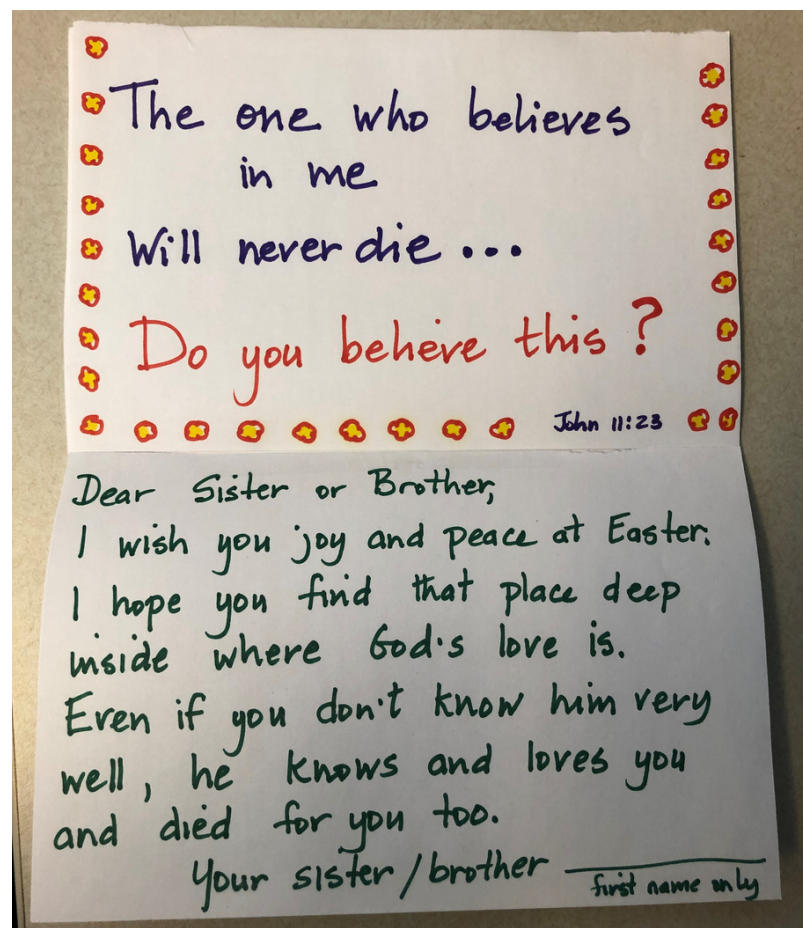 The one who believes
in me
Will never die...
Do you believe this?
John 11:23
Dear Sister or Brother,
I wish you joy and peace at Easter.
I hope you find that place deep
inside where God's love is.
Even if you don't know him very
well, he knows and loves you
and died for you too.
Your sister/brother ________
first name only